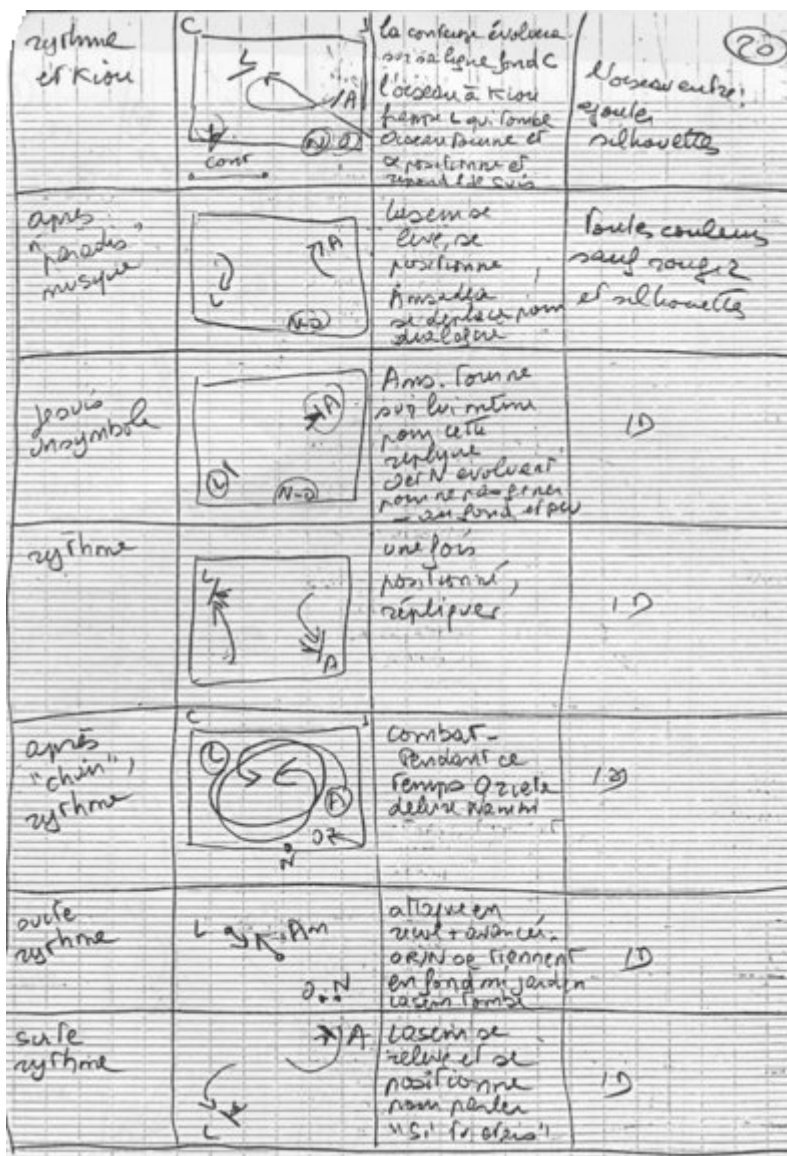 20
rythme
et Kiou
C
J
L
A
N
O
cont
la conteuse évoluera
sur sa ligne fond C
l'oiseau à Kiou
frappe L qui tombe
Oiseau tourne et
se positionne et
répond "Je suis
L'oiseau entre :
ajouter
silhouettes
après
"paradis"
musique
A
L
N-O
Lasem se
lève, se
positionne
se déplace pour
dialogue
Toutes couleurs
sauf rouge 2
et silhouettes
Je suis
un symbole
A
L
N-O
Ams. tourne
sur lui même
pour cette
réplique
O et N évoluent
pour ne pas gêner
au fond et peu
ID
rythme
L
A
une fois
positionné,
répliquer
ID
après
"chien",
rythme
C
J
L
A
N
combat -
Pendant ce
temps
délivre
ID
suite
rythme
L
Am
O
N
attaque en
recul + avancée.
OR/N se tiennent
en fond mi jardin
Lasem tombe
ID
suite
rythme
A
L
Lasem se
relève et se
positionne
pour parler
"Si tu
ID